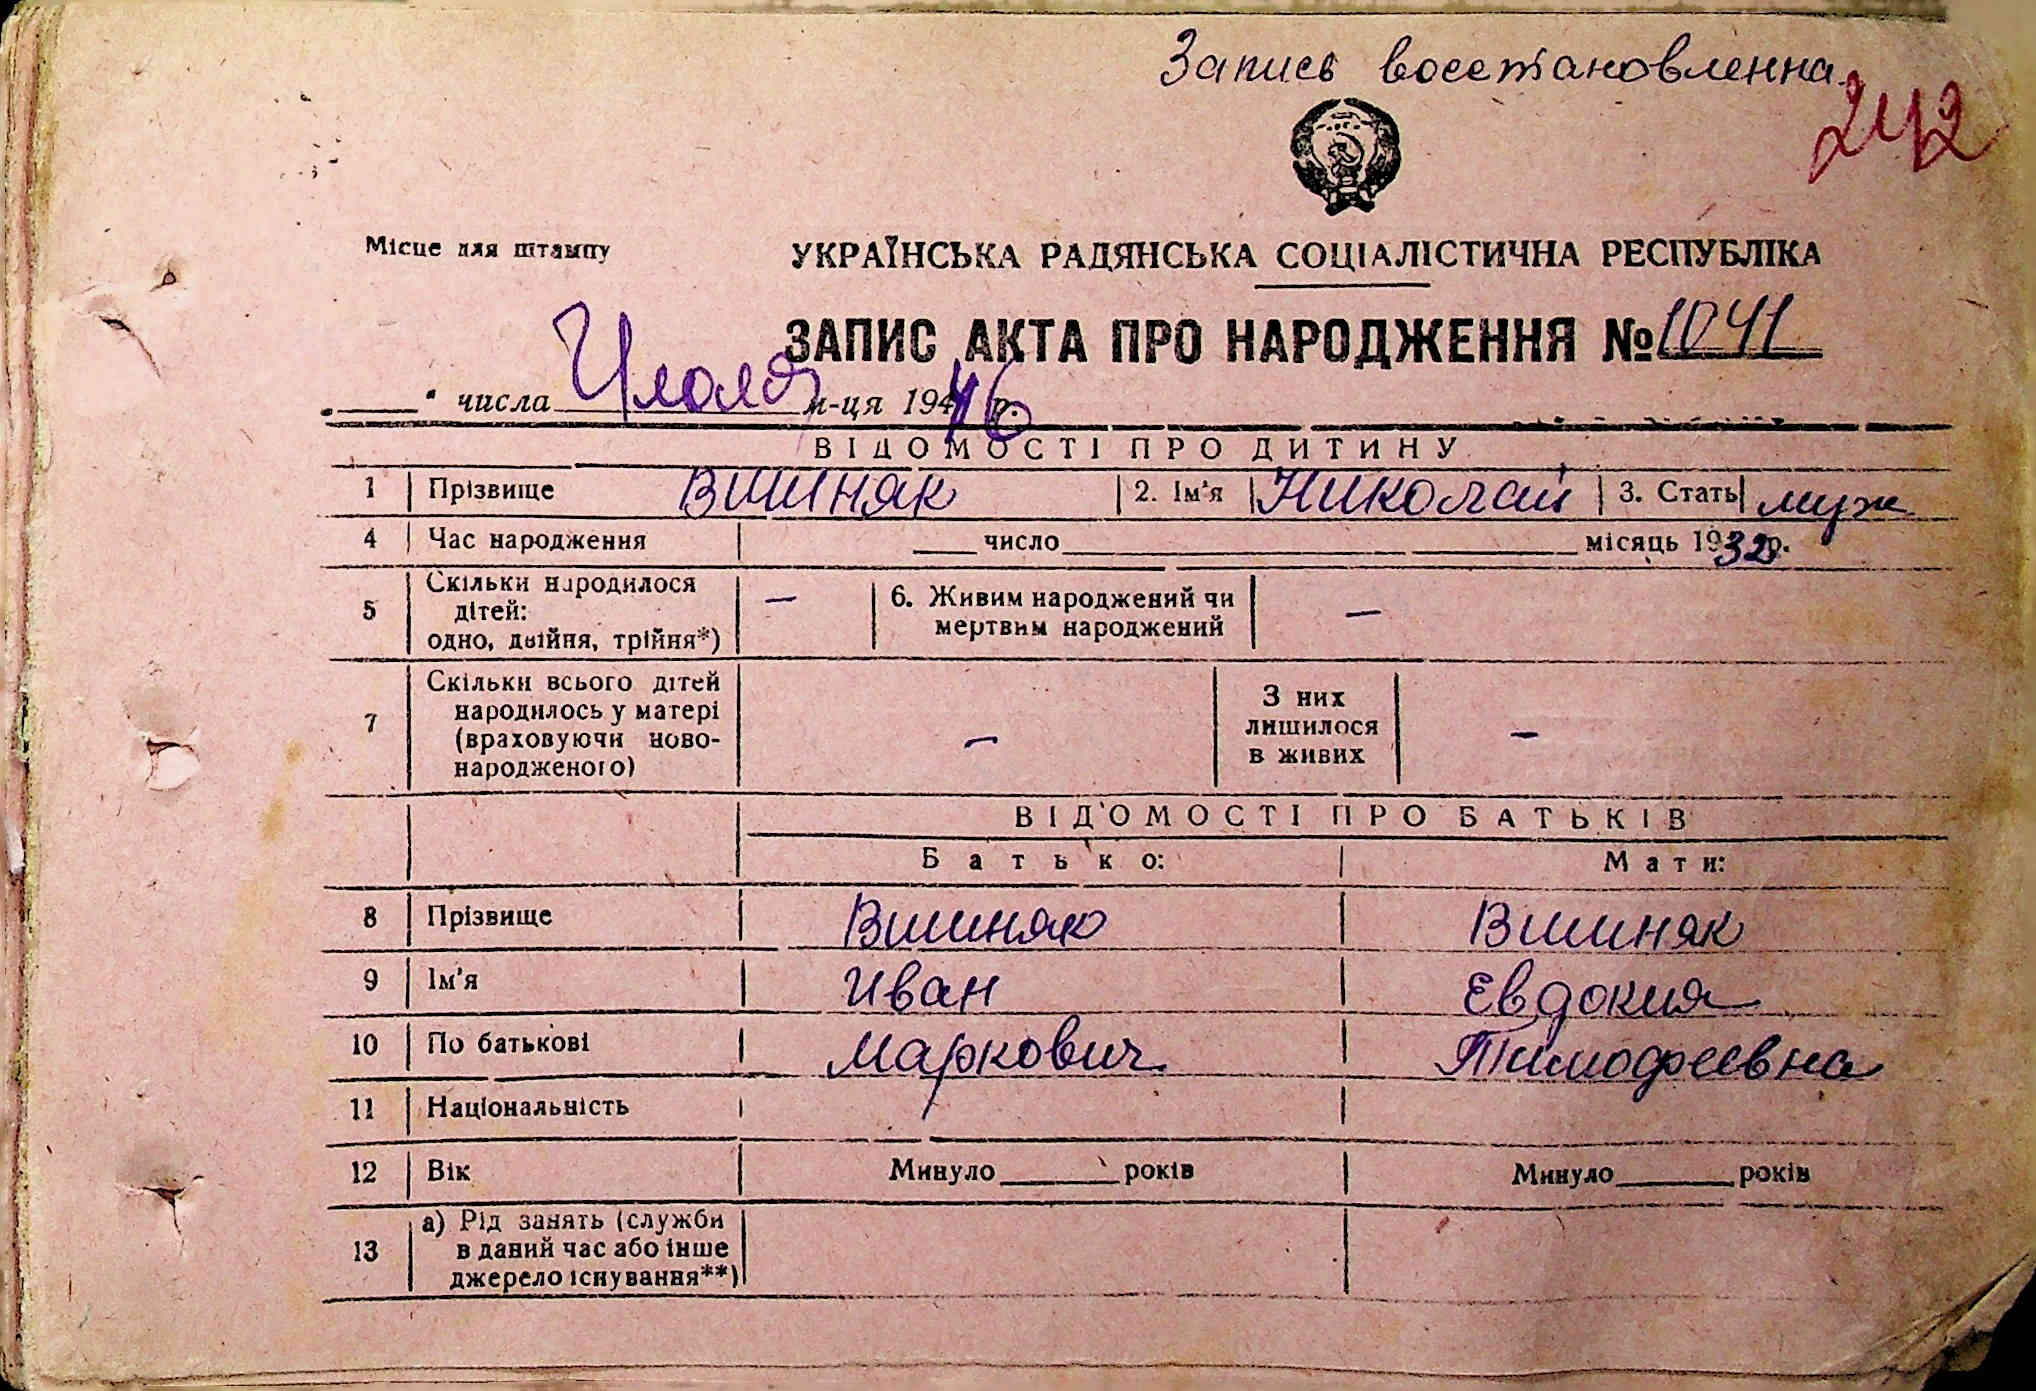 Запись восстановленна.
242
Місце для штампу
УКРАЇНСЬКА РАДЯНСЬКА СОЦІАЛІСТИЧНА РЕСПУБЛІКА
ЗАПИС АКТА ПРО НАРОДЖЕННЯ № 1041
„____“ числа Июля м-ця 1946 р.
ВІДОМОСТІ ПРО ДИТИНУ
1 Прізвище Вишняк 2. Ім'я Николай 3. Стать муж
4 Час народження ____ число ____ місяць 1932 р.
5 Скільки народилося дітей: одно, двійня, трійня*) — 6. Живим народжений чи мертвим народжений —
7 Скільки всього дітей народилось у матері (враховуючи ново-народженого) — З них лишилося в живих —
ВІДОМОСТІ ПРО БАТЬКІВ
Батько: Мати:
8 Прізвище Вишняк Вишняк
9 Ім'я Иван Евдокия
10 По батькові Маркович Тимофеевна
11 Національність
12 Вік Минуло ____ років Минуло ____ років
13 а) Рід занять (служби в даний час або інше джерело існування**)